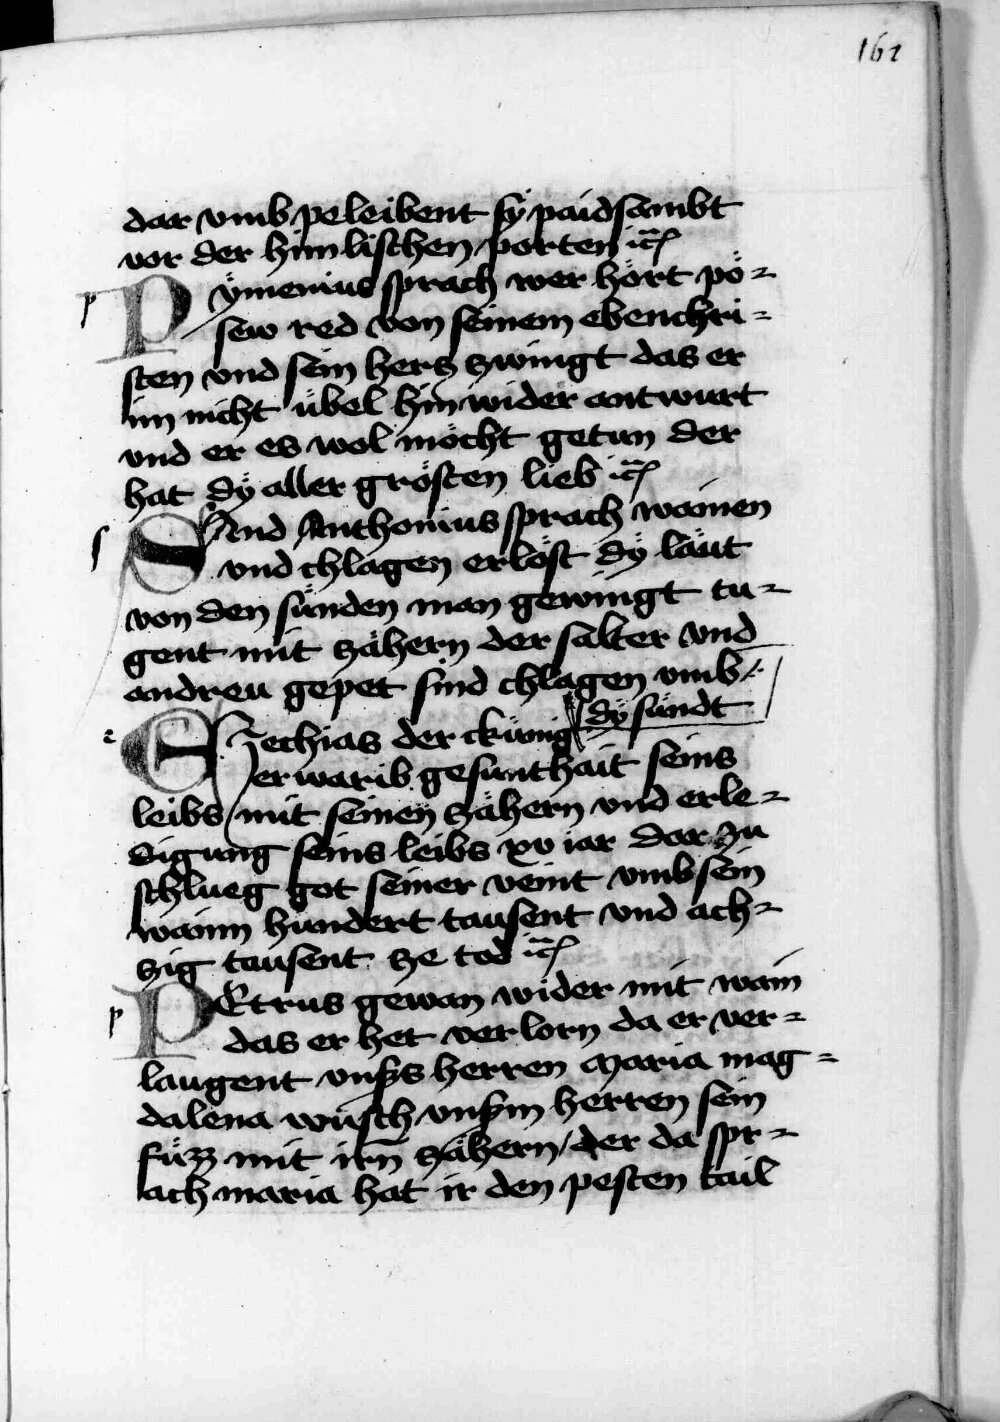 162
dar vmb peleibent sÿ paidsambt
vor der himlischen porten ꝛc̃
p Pÿmenius sprach wer hört pö=
sew red von seinem ebenchri=
sten vnd sein hercz zwingt das er
im nicht übel hin wider antwurt
vnd er es wol möcht getun der
hat dÿ aller grösten lieb ꝛc̃
s SAnd Anthonius sprach wainen
vnd chlagen erlöst dÿ läut
von den sünden man gewingt tu=
gent mit zähern der salter vnd
andreu gepet sind chlagen vmb
dÿ sündt
e Ezechias der ckünig
erwarib gesunthait seins
leibs mit seinen zähern vnd erle=
digung seins leibs xv iar dar zu
schlueg got seiner veint vmb sein
wainn hundert tausent vnd ach=
zig tausent ze tod ꝛc̃
p PEtrus gewan wider mit wain
das er het verlorn da er ver=
laugent vnsers herren Maria mag=
dalena wusch vnserm herren sein
füzz mit irn zähern der da spr=
ach maria hat ir den pesten tail